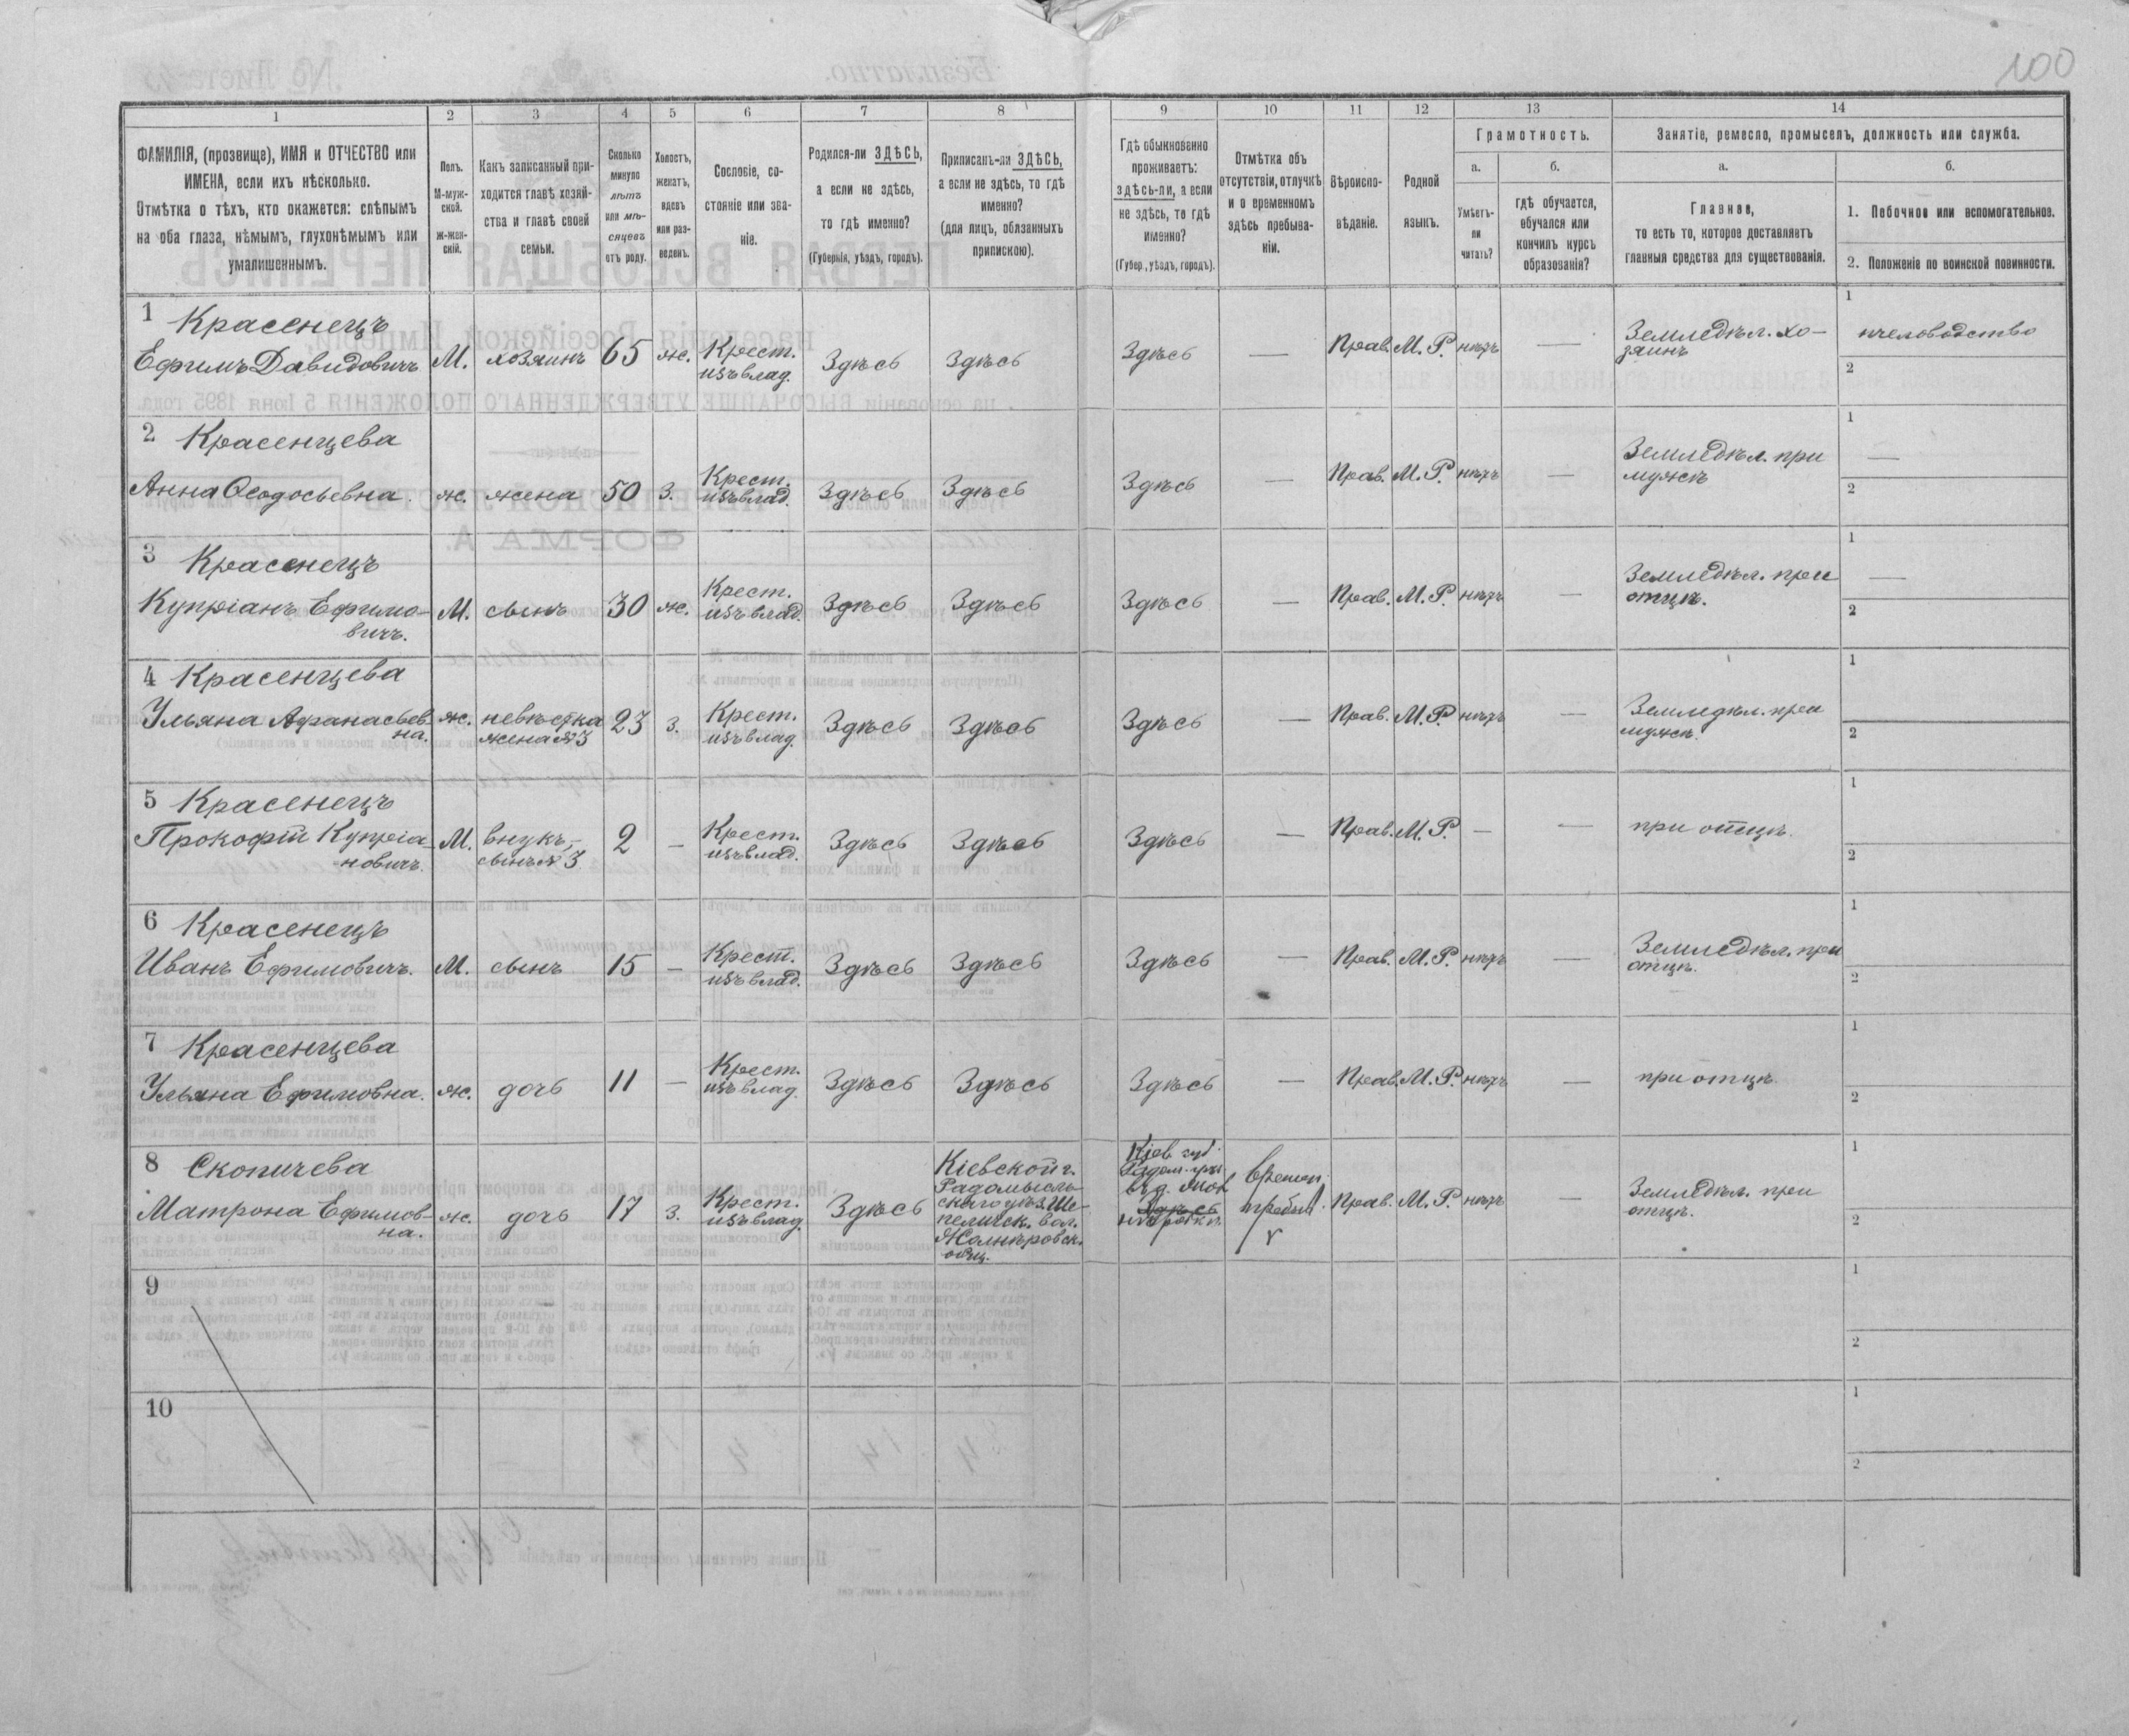 100
1
2
3
4
5
6
7
8
9
10
11
12
13
14
ФАМИЛІЯ, (прозвище), ИМЯ и ОТЧЕСТВО или
ИМЕНА, если ихъ нѣсколько.
Отмѣтка о тѣхъ, кто окажется: слѣпымъ
на оба глаза, нѣмымъ, глухонѣмымъ или
умалишеннымъ.
Полъ.
М-муж-
ской.
ж-жен-
скій.
Какъ записанный при-
ходится главѣ хозяй-
ства и главѣ своей
семьи.
Сколько
минуло
лѣтъ
или мѣ-
сяцевъ
отъ роду.
Холостъ,
женатъ,
вдовъ
или раз-
веденъ.
Сословіе, со-
стояніе или зва-
ніе.
Родился-ли ЗДѢСЬ,
а если не здѣсь,
то гдѣ именно?
(Губернія, уѣздъ, городъ).
Приписанъ-ли ЗДѢСЬ,
а если не здѣсь, то гдѣ
именно?
(для лицъ, обязанныхъ
припискою).
Гдѣ обыкновенно
проживаетъ:
здѣсь-ли, а если
не здѣсь, то гдѣ
именно?
(Губер., уѣздъ, городъ).
Отмѣтка объ
отсутствіи, отлучкѣ
и о временномъ
здѣсь пребыва-
ніи.
Вѣроиспо-
вѣданіе.
Родной
языкъ.
Грамотность.
а.
Умѣетъ-
ли
читать?
б.
гдѣ обучается,
обучался или
кончилъ курсъ
образованія?
Занятіе, ремесло, промыселъ, должность или служба.
а.
Главное,
то есть то, которое доставляетъ
главныя средства для существованія.
б.
1. Побочное или вспомогательное.
2. Положеніе по воинской повинности.
1 Красенецъ
Ефимъ Давидовичъ М. хозяинъ 65 ж. Крест. изъ влад. Здѣсь Здѣсь Здѣсь — Прав. М.Р. нѣтъ — Земледѣл. хо-
зяинъ
1 пчеловодство
2
2 Красенцева
Анна Ѳеодосьевна. ж. жена 50 З. Крест. изъ влад. Здѣсь Здѣсь Здѣсь — Прав. М.Р. нѣтъ — Земледѣл. при
мужѣ
1 —
2
3 Красенецъ
Купріанъ Ефимо-
вичъ. М. сынъ 30 ж. Крест. изъ влад. Здѣсь Здѣсь Здѣсь — Прав. М.Р. нѣтъ — Земледѣл. при
отцѣ.
1 —
2
4 Красенцева
Ульяна Афанасьев-
на. ж. невѣстка
жена №3 23 З. Крест. изъ влад. Здѣсь Здѣсь Здѣсь — Прав. М.Р. нѣтъ — Земледѣл. при
мужѣ.
1
2
5 Красенецъ
Прокофій Купріа-
новичъ. М. внукъ,
сынъ №3. 2 — Крест. изъ влад. Здѣсь Здѣсь Здѣсь — Прав. М.Р. — — при отцѣ.
1
2
6 Красенецъ
Иванъ Ефимовичъ. М. сынъ 15 — Крест. изъ влад. Здѣсь Здѣсь Здѣсь — Прав. М.Р. нѣтъ — Земледѣл. при
отцѣ.
1
2
7 Красенцева
Ульяна Ефимовна. ж. дочь 11 — Крест. изъ влад. Здѣсь Здѣсь Здѣсь — Прав. М.Р. нѣтъ — при отцѣ.
1
2
8 Скопичева
Матрона Ефимов-
на. ж. дочь 17 З. Крест. изъ влад. Здѣсь
Кіевской г.
Радомысль-
скаго уѣз. Ше-
пелическ. вол.
общ.
Кіев. губ.
Здѣсь
Времен.
пребыв.
Прав. М.Р. нѣтъ — Земледѣл. при
отцѣ.
1
2
9
1
2
10
1
2